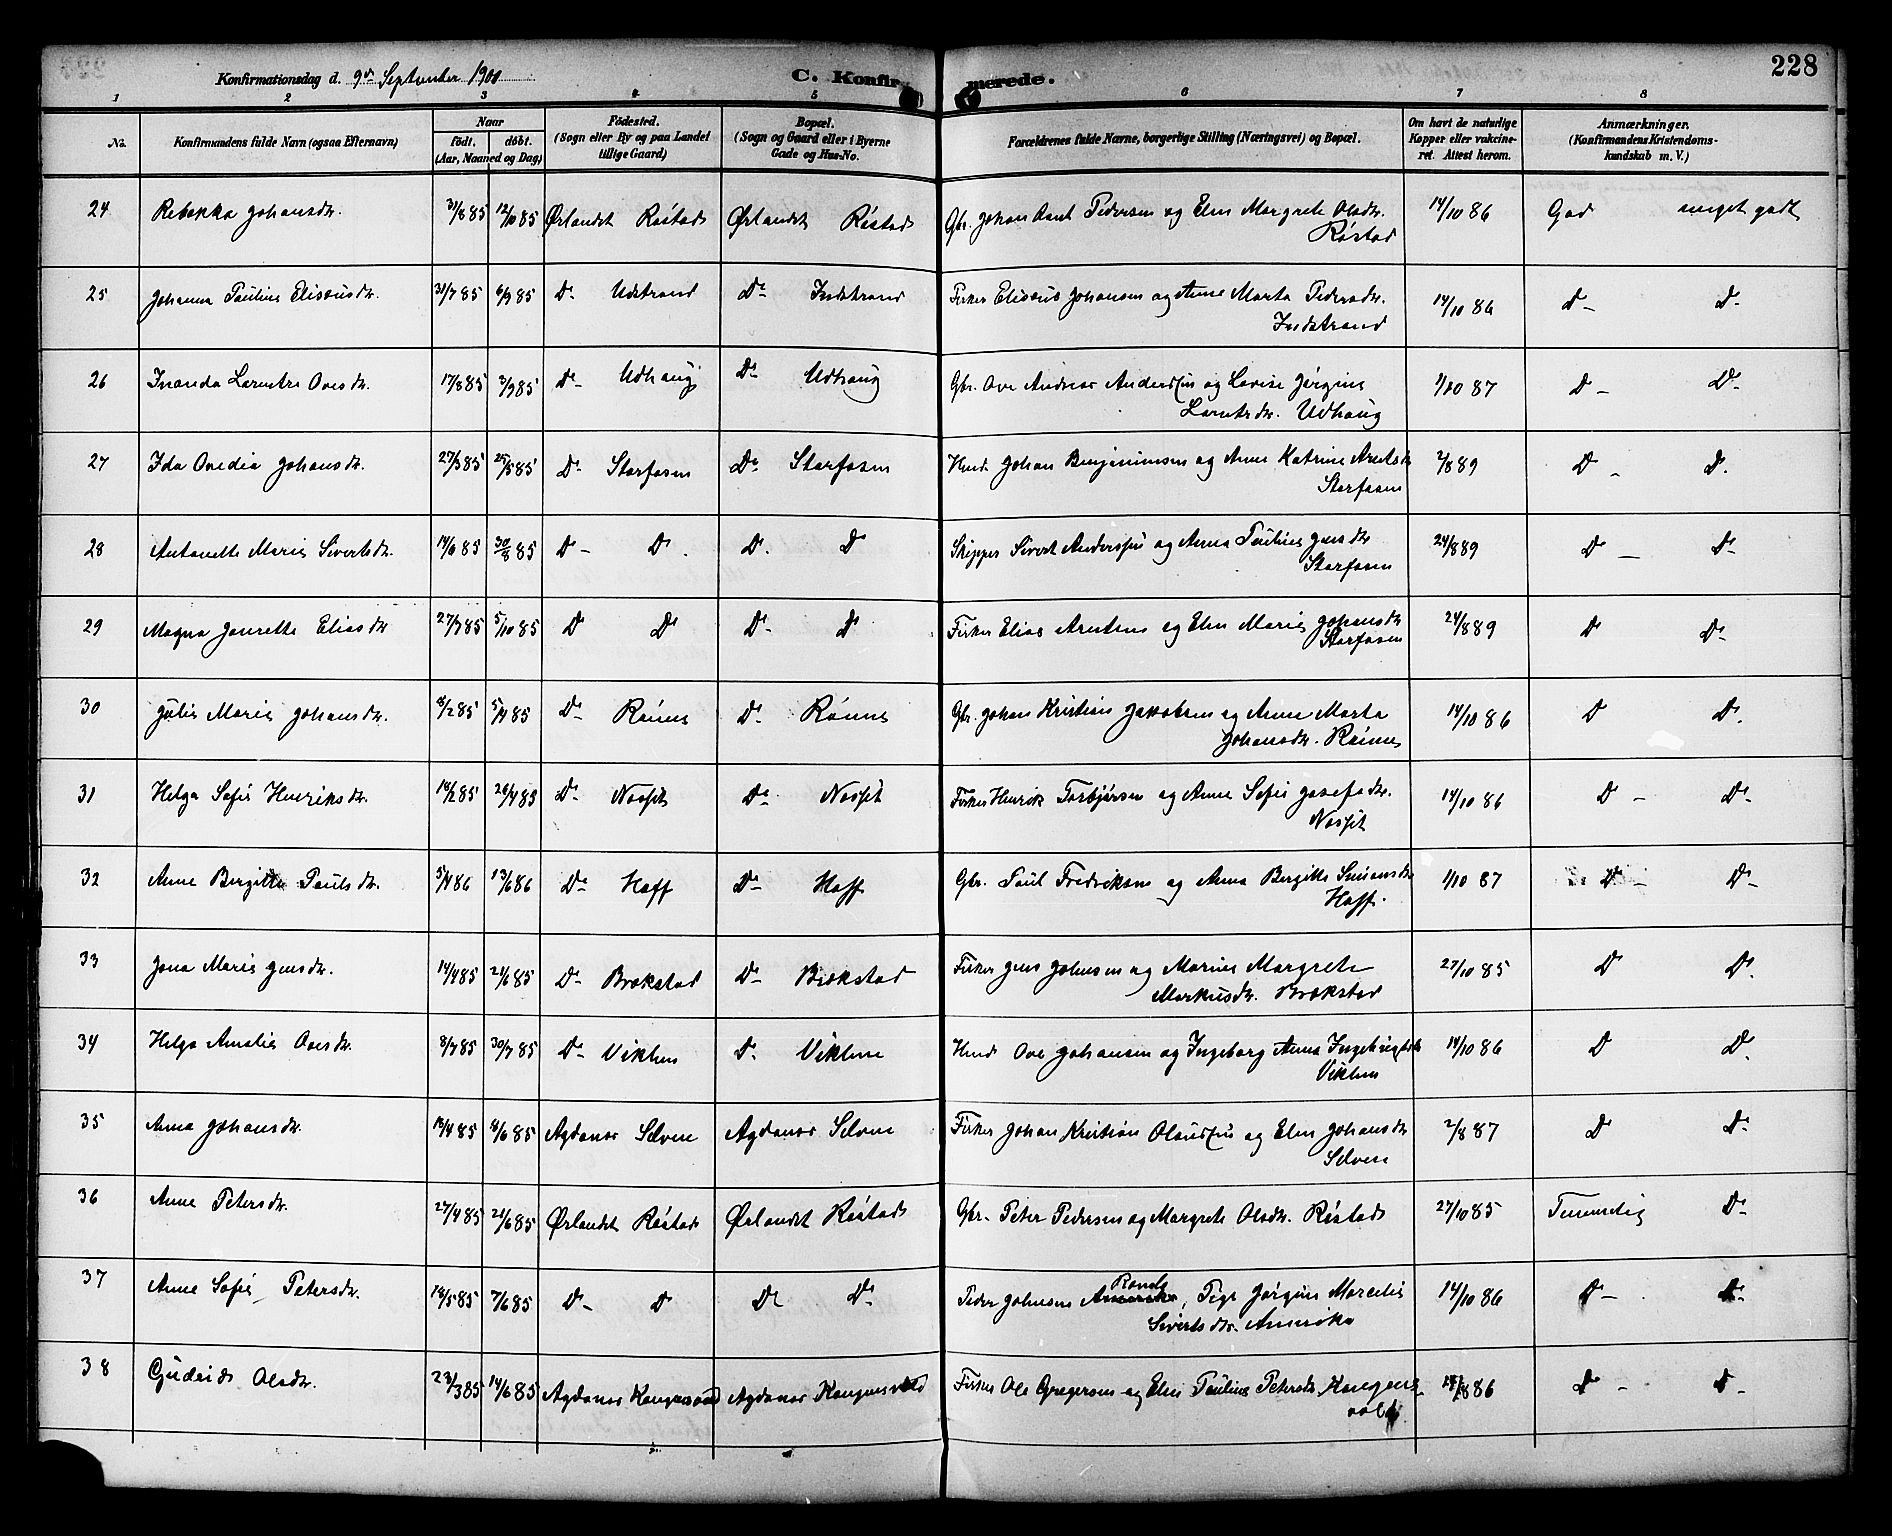 228
Konfirmationsdag d. 9de September 1900
C. Konfirmerede.
1 2 3 4 5 6 7 8
No. Konfirmandens fulde Navn (ogsaa Efternavn) Naar født, døbt. (Aar, Maaned og Dag) Fødested. (Sogn eller By og paa Landet tillige Gaard.) Bopæl. (Sogn og Gaard eller i Byerne Gade og Hus-No. Forældrenes fulde Navne, borgerlige Stilling (Næringsvei) og Bopæl. Om havt de naturlige Kopper eller vakcineret. Attest herom. Anmærkninger. (Konfirmandens Kristendomskundskab m. V.)
24 Rebekka Johansdtr. 31/8 85 12/10 85 Ørlandet Røstad Ørlandet Røstad Gbr. Johan Arnt Pedersen og Elen Margrete Olsdtr. 14/10 86 God meget godt
Røstad
25 Johanna Pauline Eliseusdtr. 31/7 85 6/9 85 Do Udstrand Do Indstrand Fisker Eliseus Johansen og Anne Marta Pedersdtr. 14/10 86 Do Do
Indstrand
26 Inanda Larntze Ovesdtr. 17/8 85 3/9 85 Do Udhaug Do Udhaug Gbr. Ove Andreas Anderssen og Lovise Jørgine 1/10 87 Do Do
Larntsdtr. Udhaug
27 Ida Ovedia Johansdtr. 27/3 85 25/5 85 Do Storfosen Do Storfosen Husm. Johan Benjaminsen og Anne Katrine Arntsdtr 2/8 89 Do Do
Storfosen
28 Antonette Marie Sivertsdtr. 14/6 85 30/8 85 Do Do Do Do Skipper Sivert Anderssen og Anna Pauline Jensdtr 24/8 89 Do Do
Storfosen
29 Magna Jonette Eliasdtr 27/7 85 5/10 85 Do Do Do Do Fisker Elias Arntsen og Elen Marie Johansdtr 24/8 89 Do Do
Storfosen
30 Julie Marie Johansdtr. 8/2 85 5/4 85 Do Rønne Do Rønne Gbr. Johan Kristian Jakobsen og Anne Marta 14/10 86 Do Do
Johansdtr. Rønne
31 Helga Sofie Henriksdtr. 14/2 85 26/4 85 Do Do Fisker Henrik Torbjørsen og Anne Sofie Josefsdtr. 14/10 86 Do Do
32 Anne Bergitte Paulsdtr. 5/4 86 13/6 86 Do Hoff Do Hoff Gbr. Paul Fredriksen og Anna Bergitte Simonsdtr 1/10 87 Do Do
Hoff.
33 Jona Marie Jensdtr. 14/4 85 21/6 85 Do Brækstad Do Brækstad Fisker Jens Johnsen og Marine Margrete 27/10 85 Do Do
Markusdtr. Brækstad
34 Helga Amalie Ovesdtr. 8/7 85 30/7 85 Do Viklem Do Viklem Husm. Ove Johansen og Ingeborg Anna Ingebrigtsdtr 14/10 86 Do Do
Viklem
35 Anna Johansdtr. 13/4 85 4/6 85 Agdanes Selven Agdanes Selven Fisker Johan Kristian Olaussen og Elen Johansdtr 2/8 87 Do Do
Selven
36 Anne Petersdtr. 27/4 85 21/6 85 Ørlandet Røstad Ørlandet Røstad Gbr. Peter Pedersen og Margrete Olsdtr. Røstad 27/10 85 Temmelig Do
37 Anne Sofie Petersdtr. 14/5 85 7/6 85 Do Do Do Do Peder Johnsen Amerika, Pige Jørgine Marcelie 14/10 86 Do Do
Sivertsdtr. Amerika
38 Gudrid Olsdtr. 23/3 85 14/6 85 Agdanes Kongensvold Agdanes Kongensvold Fisker Ole Gregersen og Elen Pauline Petersdtr Kongens- 8 86 Do Do
vold